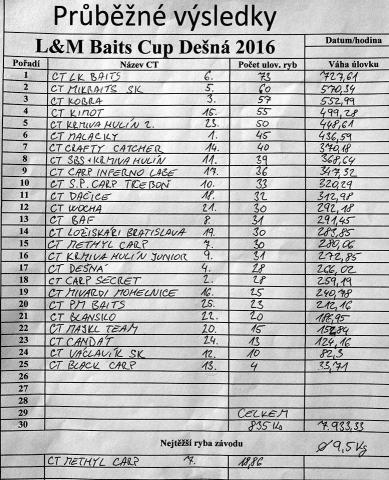 Průběžné výsledky
L&M Baits Cup Dešná 2016 Datum/hodina
Pořadí Název CT Počet ulov. ryb Váha úlovku
1 CT LK BAITS 6. 73 727,61
2 CT MIKBAITS SK 5. 60 570,34
3 CT KOBRA 3. 57 552,99
4 CT KIMOT 15. 55 499,28
5 CT KRMIVA HULÍN 2. 23. 50 448,61
6 CT MALACKY 1. 45 436,59
7 CT CRAFTY CATCHER 14. 40 370,18
8 CT SBS+KRMIVA HULÍN 11. 39 368,64
9 CT CARP INFERNO LABE 17. 36 347,32
10 CT S.P. CARP TŘEBOŇ 10. 33 320,29
11 CT DAČICE 18. 32 312,98
12 CT WOCHA 21. 30 292,18
13 CT BAF 8. 31 291,45
14 CT LOŽISKÁŘI BRATISLAVA 19. 30 283,85
15 CT METHYL CARP 7. 30 280,06
16 CT KRMIVA HULÍN JUNIOR 9. 31 272,85
17 CT DEŠNÁ 4. 28 266,02
18 CT CARP SECRET 2. 28 259,19
19 CT MIVARDI MOHELNICE 16. 25 240,78
20 CT PM BAITS 25. 23 212,16
21 CT BLANSKO 22. 20 188,95
22 CT MASKL TEAM 20. 15 152,84
23 CT CANDÁT 24. 13 124,16
24 CT VACLAVIK SK 12. 10 82,3
25 CT BLACK CARP 13. 4 33,71
26
27
28
29 CELKEM
30 835 Ks 7.933,33
Nejtěžší ryba závodu ø 9,5 Kg
CT METHYL CARP 7. 18,86